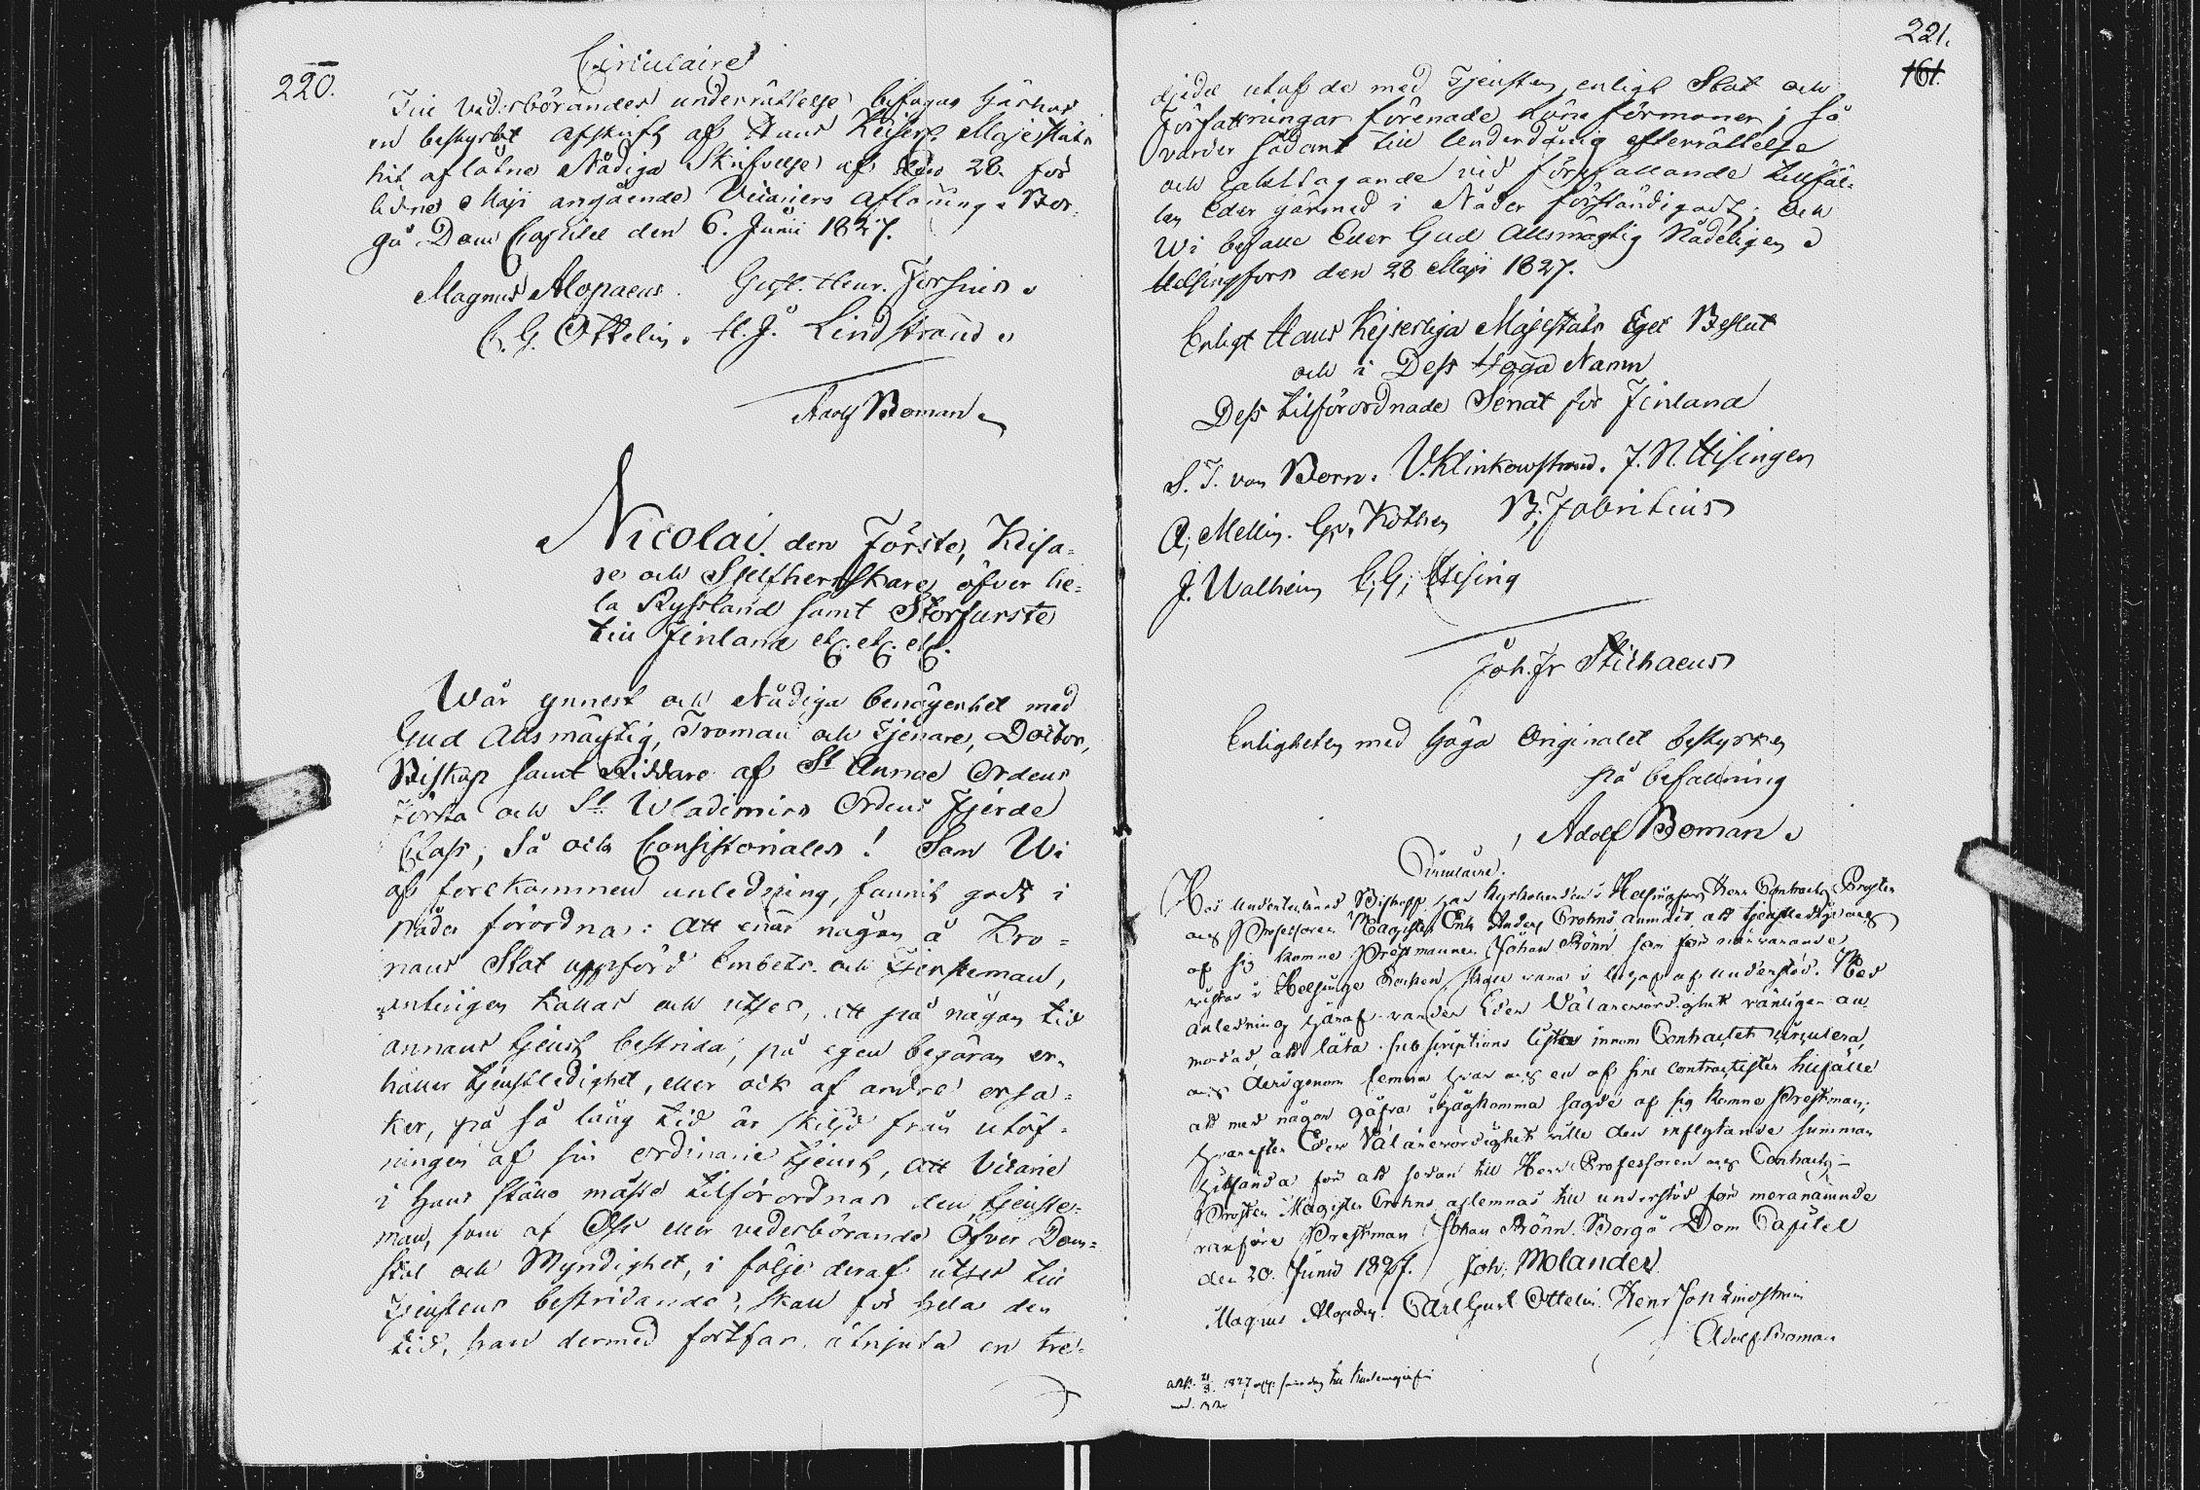 220.
Circulaire
Till vederbörandes underrättelse bifogas härhos
en bestyrkt afskrift af Hans Keiserl. Majestäts
hit aflåtne Nådiga Skrifvelse af den 28. för
lidne Maji angående Vicariers aflöning. Bor-
gå Dom Capitel den 6. Junii 1827.
Magnus Alopaeus. Gust. Henr. Forsius.
C. G. Ottelin. H. J. Lindstrand.
Adolf Boman.
Nicolai den Förste, Keisa-
re och Sjelfherrskare öfver he-
la Ryssland samt Storfurste
till Finland etc. etc. etc.
Wår ynnest och Nådiga benägenhet med
Gud Allsmägtig, Troman och Tjenare, Doctor,
Biskop samt Riddare af St Annae Ordens
Första och St Wladimirs Ordens Fjerde
Class, Så och Consistoriales! Som Wi
af förekommen anledning, funnit godt i
Nåder förordna: att enär någon å Kro-
nans Stat uppförd Embets- och Tjensteman,
antingen kallas och utses, att på någon tid
annans tjenst bestrida, på egen begäran er-
håller tjenstledighet, eller ock af andre orsa-
ker, på så lång tid är skiljd från utöf-
ningen af sin ordinarie tjenst, att Vicarie
i hans ställe måste tilförordnas den tjenste-
man, som af Oss eller vederbörande Öfver Dom-
stol och Myndighet, i följe deraf utses till
Tjenstens bestridande, skall för hela den
tid, han dermed fortfar, åtnjuta en tre-
221.
161.
djedel utaf de med Tjensten, enligt Stat och
Författningar förenade Löne förmoner; så
varder sådant till Underdånig efterrättelse
och iakttagande vid förefallande tillfäl-
len Eder härmed i Nåder förständigadt; och
Wi befalle Eder Gud Allsmägtig Nådeligen.
Helsingfors den 28 Maji 1827.
Enligt Hans Kejserliga Majestäts Eget Beslut
och i Dess Höga Namn
Dess tilförordnade Senat för Finland
S. F. von Born. V. Klinkowström. F. N. Hisingen
A. Mellin. G. v. Kothen B. Fabritius
J. Walheim C. G. Hising
Joh. Fr Stichaeus
Enligheten med höga Originalet bestyrker
på befallning
Adolf Boman.
Circulaire.
Hos undertecknad Biskopp har Kyrkoherden i Helsingfors Herr Contracts Prosten
och Professoren Magister Crohns anmält att tjenstledige och
af sig komne Prestmannen Johan Rönn som för närvarande
vistas i Helsinge Socken, skall vara i behof af understöd. Med
anledning häraf varder Eder Välärevördighet vänligen an-
modad, att låta subscriptions listor innom Contractet circulera,
och derigenom lemna hvar och en af sine contractister tillfälle
att med någon gåfva ihågkomma sagde af sig komne Prestman;
hvarefter Eder Välärevördighet ville den inflytande summan
hitsända för att sedan till Herr Professoren och Contracts-
Prosten Magister Crohns aflemnas till understöd för meranämnde
vanföre Prestman Johan Rönn. Borgå Dom Capitel
den 20. Junii 1827. Joh. Molander.
Magnus Alopaeus. Carl Gust Ottelin. Henr Joh Lindström
Adolf Boman